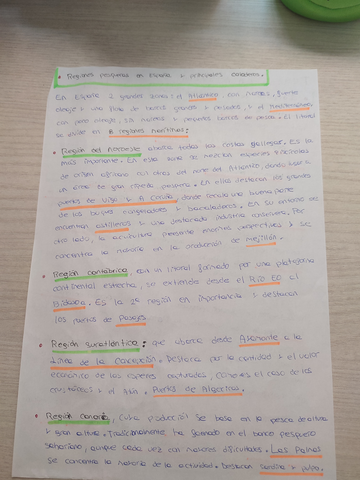 • Regiones pesqueras en España y principales caladeros.
En España 2 grandes zonas: el Atlántico, con mareas, fuerte
oleaje y una flota de barcos grandes y potentes, y el Mediterráneo,
con poco oleaje, sin mareas y pequeños barcos de pesca. El litoral
se divide en 8 regiones marítimas:
• Región del Noroeste: abarca todas las costas gallegas. Es la
más importante. En esta zona se mezclan especies
de origen con otras del norte del Atlántico, dando lugar a
un área de gran riqueza pesquera. En ella destacan los grandes
puertos de Vigo y A Coruña, donde recala una buena parte
de los buques congeladores y bacaladeros. En su entorno se
encuentran astilleros y una destacada industria conservera. Por
otro lado, la acuicultura presenta enormes perspectivas y se
concentra la mayoría en la producción de mejillón.
• Región cantábrica: con un litoral formado por una plataforma
continental estrecha, se extiende desde el Río EO al
Bidasoa. Es la 2ª región en importancia y destacan
los puertos de Pasajes
• Región suratlántica: que abarca desde Ayamonte a la
Línea de la Concepción. Destaca por la cantidad y el valor
económico de las especies capturadas, como es el caso de los
crustáceos y el atún. Puerto de Algeciras.
• Región canaria, cuya producción se basa en la pesca de altura
y gran altura. Tradicionalmente ha faenado en el banco pesquero
sahariano, aunque cada vez con mayores dificultades. Las Palmas
se concentra la mayoría de la actividad. Destacan sardina y pulpo.